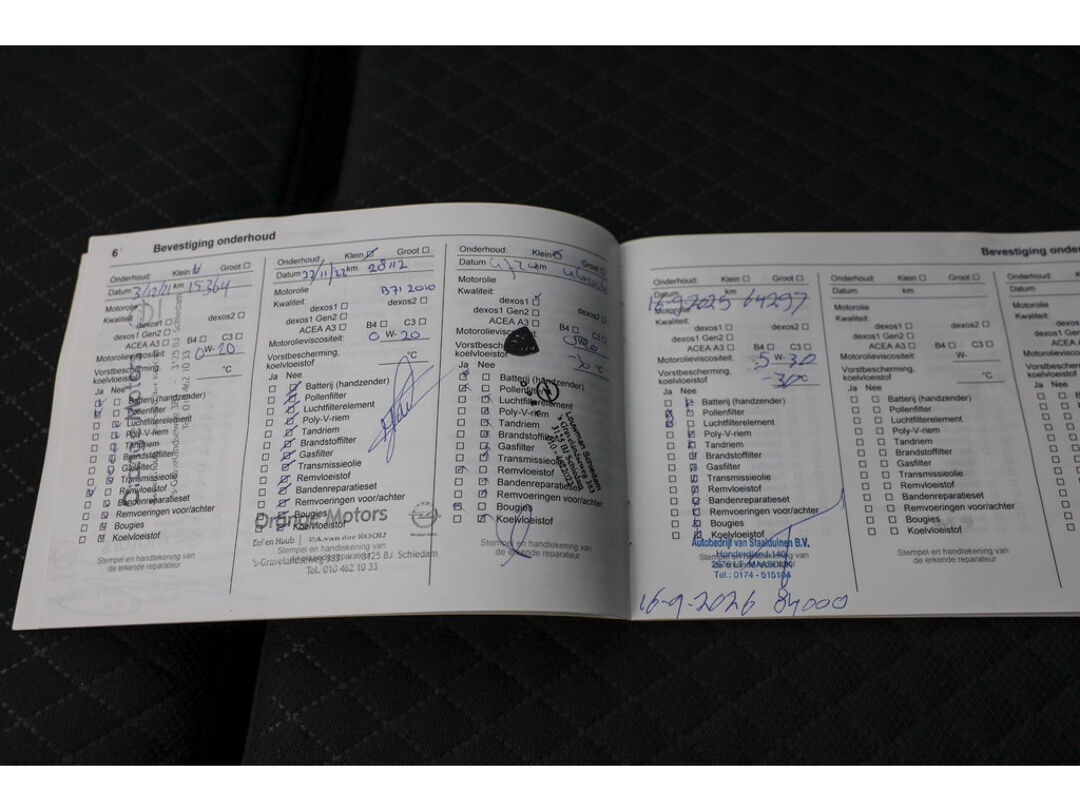 6
Bevestiging onderhoud
Onderhoud: Klein Groot
Datum 3/12/21 km 15364
Motorolie
Kwaliteit:
dexos1 dexos2
dexos1 Gen2
ACEA A3 B4 C3
Motorolieviscositeit: 0 W- 20
Vorstbescherming,
koelvloeistof °C
Ja Nee
Batterij (handzender)
Pollenfilter
Luchtfilterelement
Poly-V-riem
Tandriem
Brandstoffilter
Gasfilter
Transmissieolie
Remvloeistof
Bandenreparatieset
Remvoeringen voor/achter
Bougies
Koelvloeistof
Stempel en handtekening van
de erkende reparateur
Onderhoud: Klein Groot
Datum 22/11/22 km 28112
Motorolie B71 2010
Kwaliteit:
dexos1 dexos2
dexos1 Gen2
ACEA A3 B4 C3
Motorolieviscositeit: 0 W- 20
Vorstbescherming,
koelvloeistof °C
Ja Nee
Batterij (handzender)
Pollenfilter
Luchtfilterelement
Poly-V-riem
Tandriem
Brandstoffilter
Gasfilter
Transmissieolie
Remvloeistof
Bandenreparatieset
Remvoeringen voor/achter
Bougies
Koelvloeistof
Motors
Eef en Huub P.A. van der KOOIJ
Stempel en handtekening van
's-Gravelandseweg 383 3125 BJ Schiedam
Tel. 010 462 10 33
Onderhoud: Klein Groot
Datum km
Motorolie
Kwaliteit:
dexos1 dexos2
dexos1 Gen2
ACEA A3 B4 C3
Motorolieviscositeit:
koelvloeistof -30 °C
Ja Nee
Batterij (handzender)
Pollenfilter
Luchtfilterelement
Poly-V-riem
Tandriem
Brandstoffilter
Gasfilter
Transmissieolie
Remvloeistof
Bandenreparatieset
Remvoeringen voor/achter
Bougies
Koelvloeistof
Louwman Schiedam
Stempel en handtekening van
de erkende reparateur
Bevestiging
Onderhoud: Klein Groot
Datum km
16-9-2025 64297
Motorolie
Kwaliteit:
dexos1 dexos2
dexos1 Gen2
ACEA A3 B4 C3
Motorolieviscositeit: 5 W- 30
Vorstbescherming,
koelvloeistof -30 °C
Ja Nee
Batterij (handzender)
Pollenfilter
Luchtfilterelement
Poly-V-riem
Tandriem
Brandstoffilter
Gasfilter
Transmissieolie
Remvloeistof
Bandenreparatieset
Remvoeringen voor/achter
Bougies
Koelvloeistof
Autobedrijf van Staalduinen B.V.
Honderdland 140
MAASDIJK
Tel.: 0174 - 515104
16-9-2026 84000
Onderhoud: Klein Groot
Datum km
Motorolie
Kwaliteit:
dexos1 dexos2
dexos1 Gen2
ACEA A3 B4 C3
Motorolieviscositeit: W-
Vorstbescherming,
koelvloeistof °C
Ja Nee
Batterij (handzender)
Pollenfilter
Luchtfilterelement
Poly-V-riem
Tandriem
Brandstoffilter
Gasfilter
Transmissieolie
Remvloeistof
Bandenreparatieset
Remvoeringen voor/achter
Bougies
Koelvloeistof
Stempel en handtekening van
de erkende reparateur
Onderhoud:
Datum
Motorolie
Kwaliteit:
Ja Nee